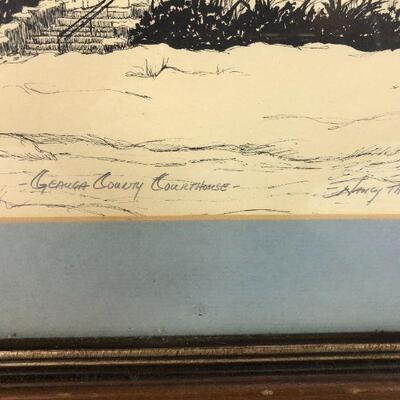 - Geauga County Courthouse -
Nancy